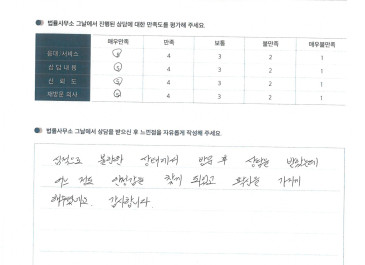 법률사무소 그날에서 진행된 상담에 대한 만족도를 평가해 주세요.
매우만족 만족 보통 불만족 매우불만족
응대/서비스 5 4 3 2 1
상담내용 5 4 3 2 1
신뢰도 5 4 3 2 1
재방문 의사 5 4 3 2 1
법률사무소 그날에서 상담을 받으신 후 느낀점을 자유롭게 작성해 주세요.
심적으로 불안한 상태에서 방문 후 상담을 받았는데
어느 정도 안정감을 찾게 되었고 확신을 가지게
해주셨네요. 감사합니다.